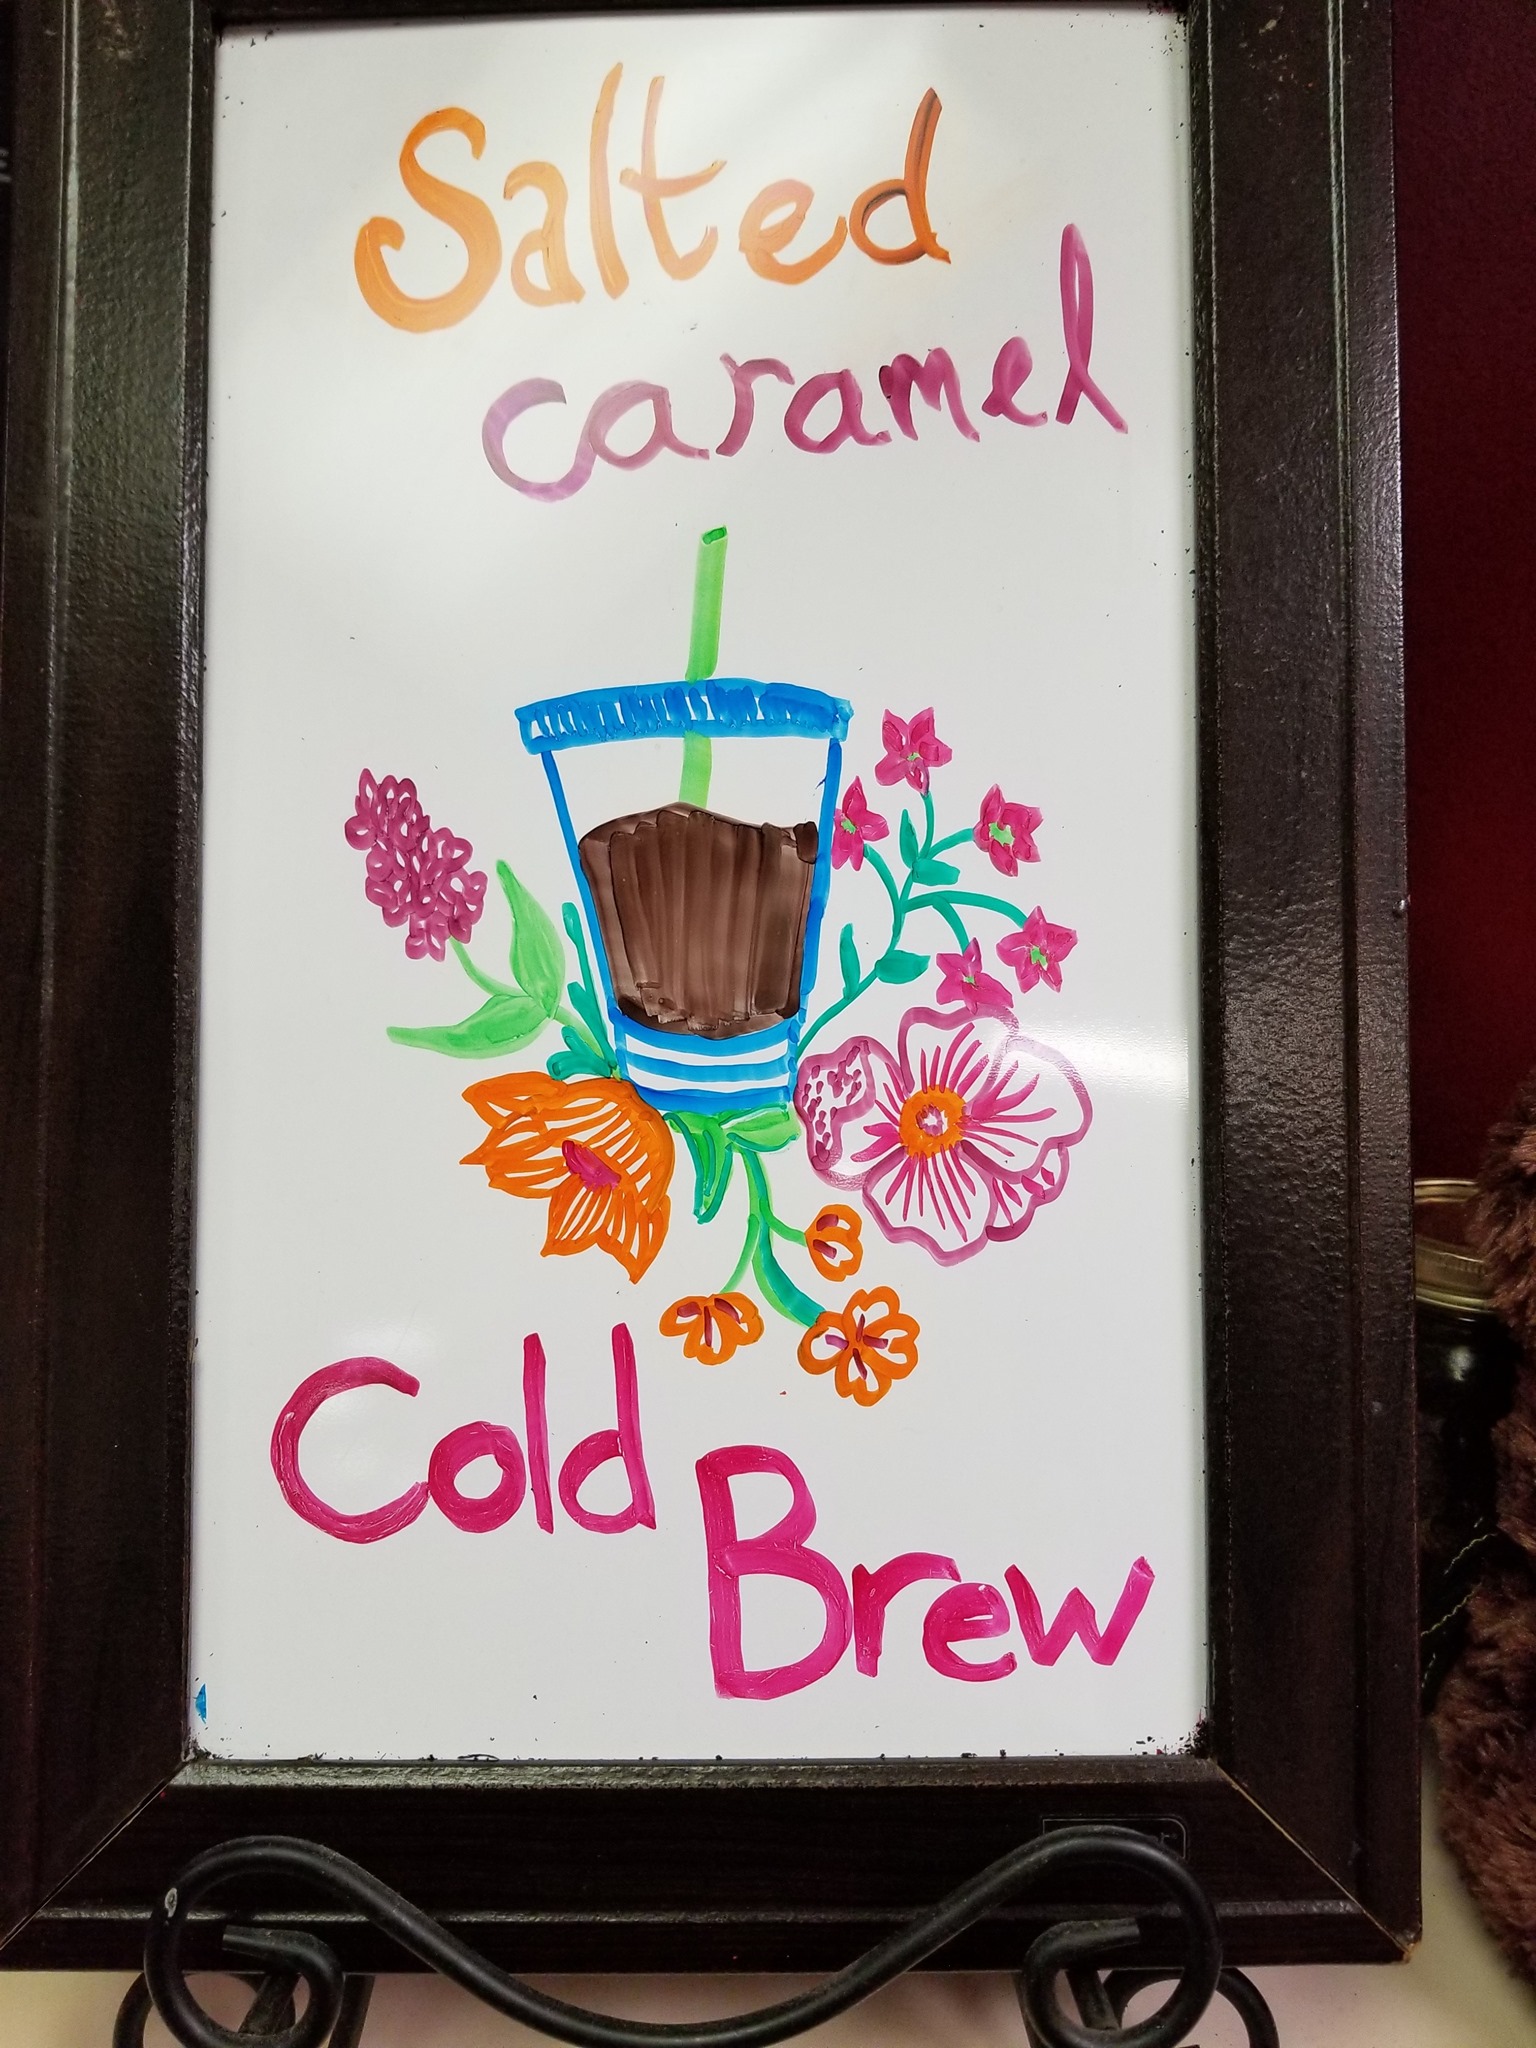 Salted
caramel
Cold
Brew